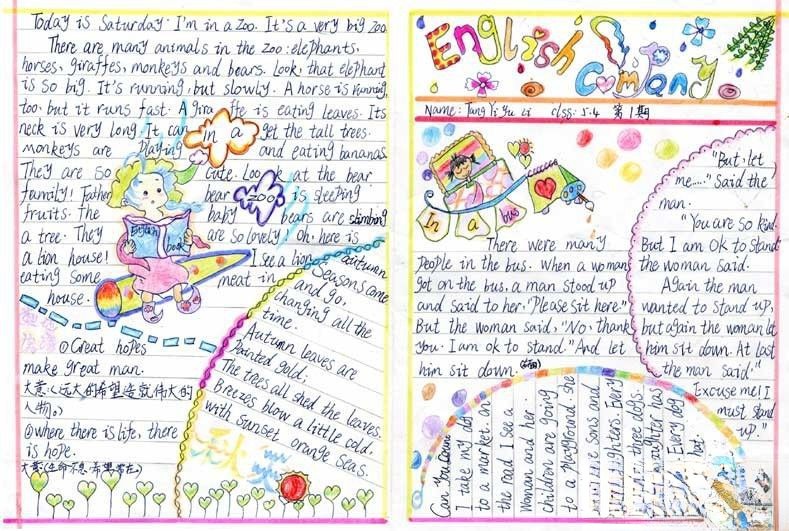 Today is Saturday. I'm in a zoo. It's a very big zoo
There are many animals in the zoo: elephants,
horses, giraffes, monkeys and bears. Look, that elephant
is so big. It's running, but slowly. A horse is running,
too, but it runs fast. A giraffe is eating leaves. Its
neck is very long. It can get the tall trees.
monkeys are playing and eating bananas
They are so cute. Look at the bear
family! Father bear is sleeping
fruits. The baby bears are climbing
a tree. They are so lovely Oh, here is
a lion house! I see a lion
eating some meat in
house.
in a
zoo
English
book
①Great hopes
make great man.
大意:(远大的希望造就伟大的
人物。)
②where there is life, there
is hope.
大意(生命不息希望常在)
autumn
Seasons come
and go.
changing all the
time.
Autumn leaves are
Painted gold;
The trees all shed the leaves.
Breezes blow a little cold.
with sunset orange seas.
English
Company
Name: Tang Yi Yu Li class: 5.4 第1期
In a bus
There were many
people in the bus. When a woman
got on the bus, a man stood up
and said to her, "Please sit here."
But the woman said, "No, thank
you. I am ok to stand." And let
him sit down.
"But, let
me....." Said the
man.
"You are so kind.
But I am ok to stand
the woman said.
Again the man
wanted to stand up,
but again the woman let
him sit down. At last
the man said."
Excuse me! I
must stand
up."
Can You
I take my dog
to a market. on
the road I see a
Woman and her
children are going
to a playground. she
sons and
daughters. Every
three dogs.
daughter has
Every dog
hat